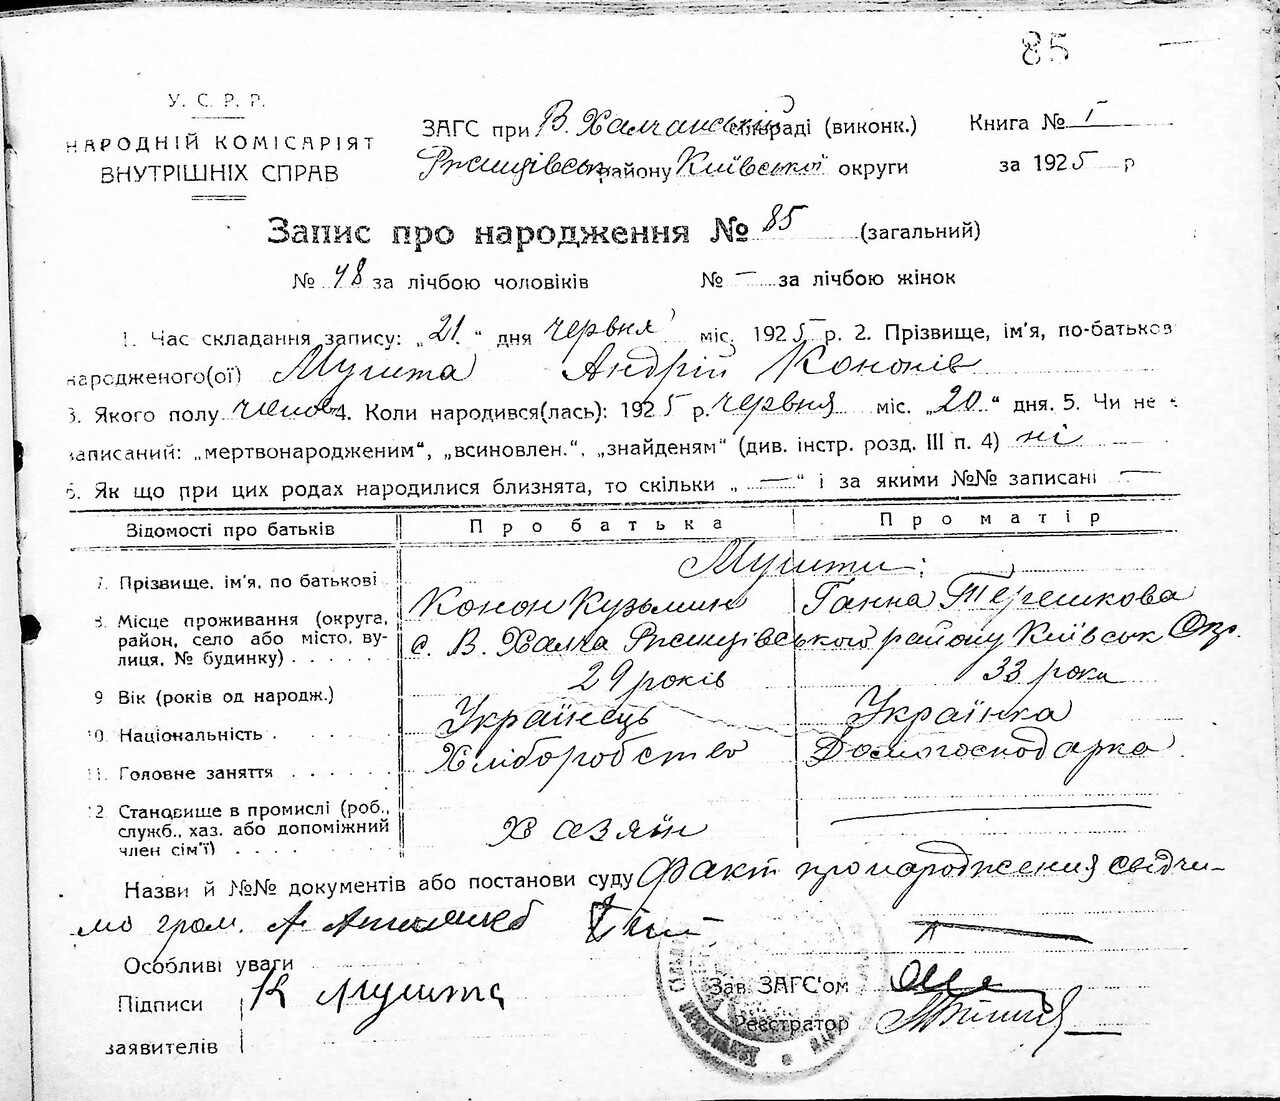 85
У. С. Р. Р.
НАРОДНІЙ КОМІСАРІЯТ
ВНУТРІШНІХ СПРАВ
ЗАГС при В. Халчанській сільраді (виконк.)
Ржищівськ району Київської округи
Книга № 1
за 1925 р
Запис про народження № 85 (загальний)
№ 48 за лічбою чоловіків № — за лічбою жінок
1. Час складання запису: „21“ дня червня міс. 1925 р. 2. Прізвище, ім'я, по-батьков
народженого(ої) Мушта Андрій Кононів
3. Якого полу чолов 4. Коли народився(лась): 1925 р. червня міс. „20“ дня. 5. Чи не
записаний: „мертвонародженим“, „всиновлен.“, „знайденям“ (див. інстр. розд. III п. 4) ні
6. Як що при цих родах народилися близнята, то скільки „—“ і за якими №№ записані —
Відомості про батьків Про батька Про матір
7. Прізвище, ім'я, по батькові Мушти:
Конон Кузьмин Ганна Терешкова
8. Місце проживання (округа, район, село або місто, вулиця, № будинку) с. В. Халча Ржищівського району Київськ Окр.
9 Вік (років од народж.) 29 років 33 рока
10. Національність Українець Українка
11. Головне заняття Хліборобство Домогосподарка
12. Становище в промислі (роб., служб., хаз. або допоміжний член сім'ї) Хазяїн
Назви й №№ документів або постанови суду Факт про народження свідчи-
мо гром.
Особливі уваги
Підписи К Мушта
заявителів
Зав. ЗАГС'ом
Реєстратор